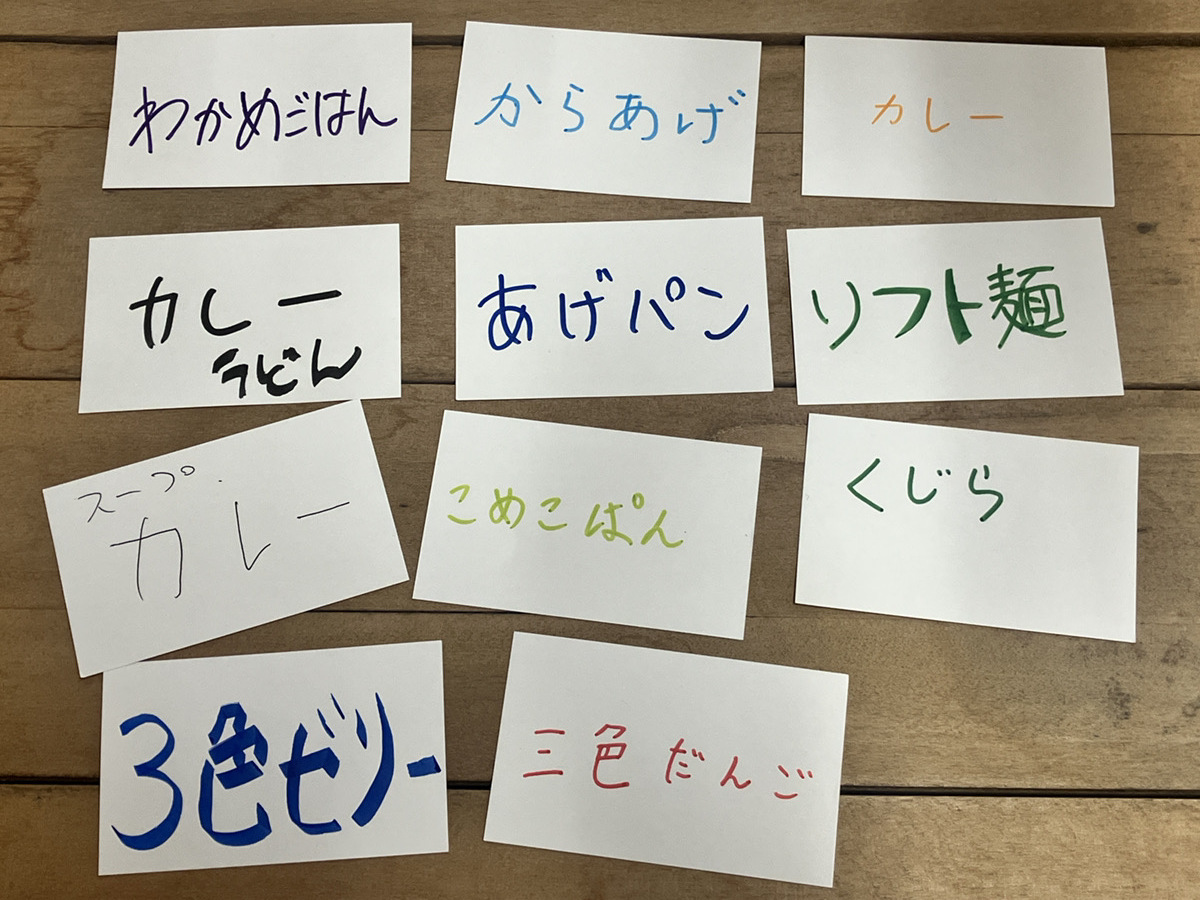 わかめごはん
からあげ
カレー
カレー
うどん
あげパン
リフト麺
スープ
カレー
こめこぱん
くじら
3色ゼリー
三色だんご